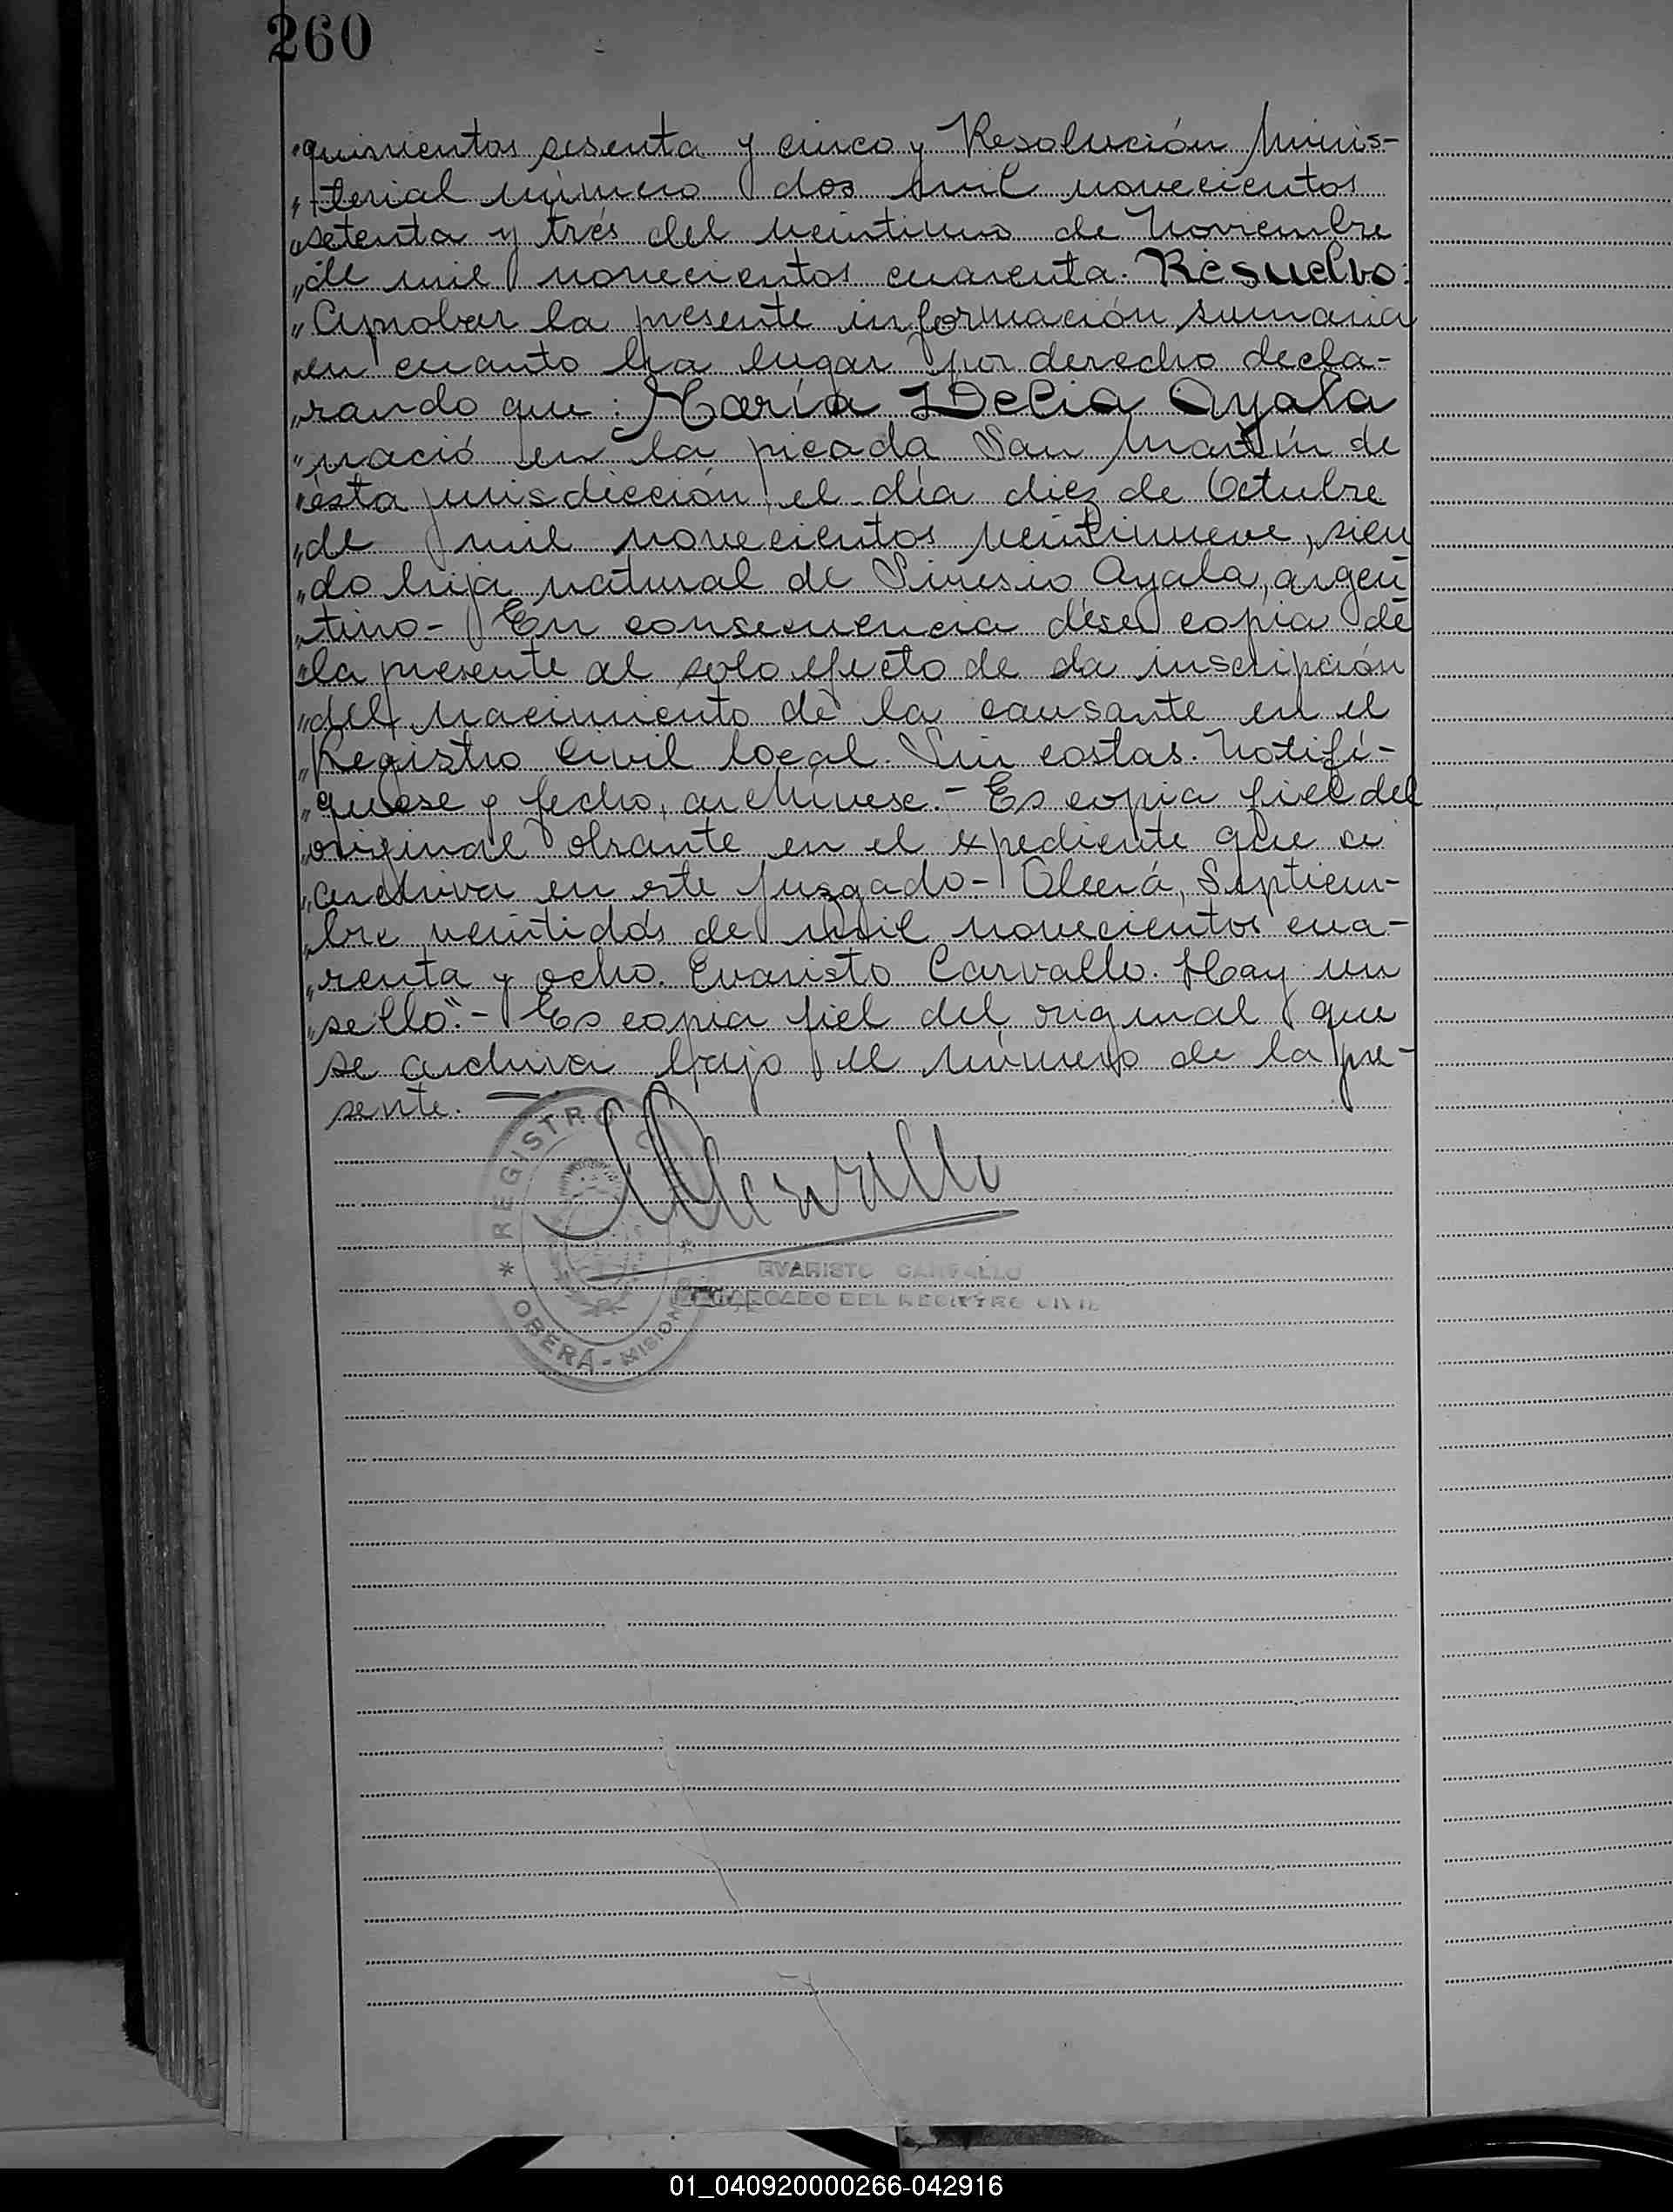 260
"quinientos sesenta y cinco y Resolución Minis-
"terial número dos mil novecientos
"setenta y trés del veintiuno de Noviembre
"de mil novecientos cuarenta. Resuelvo:
"Aprobar la presente información sumaria
"en cuanto ha lugar por derecho decla-
"rando que: María Delia Ayala
"nació en la picada San Martín de
"ésta jurisdicción el día diez de Octubre
"de mil novecientos veintinueve, sien
"do hija natural de Sinesio Ayala, argen
"tino- En consecuencia dése copia de
"la presente al solo efecto de la inscripción
"del nacimiento de la causante en el
"Registro Civil local. Sin costas. Notifí-
"quese y fecho, archívese.- Es copia fiel del
"original obrante en el expediente que se
"archiva en este Juzgado- Oberá, Septiem-
"bre veintidós de mil novecientos cua-
"renta y ocho. Evaristo Carvallo. Hay un
"sello".- Es copia fiel del original que
se archiva bajo el número de la pre-
sente.
REGISTRO
EVARISTO CARVALLO
ENCARGADO DEL REGISTRO CIVIL
* OBERA - MISIONES *
01_040920000266-042916